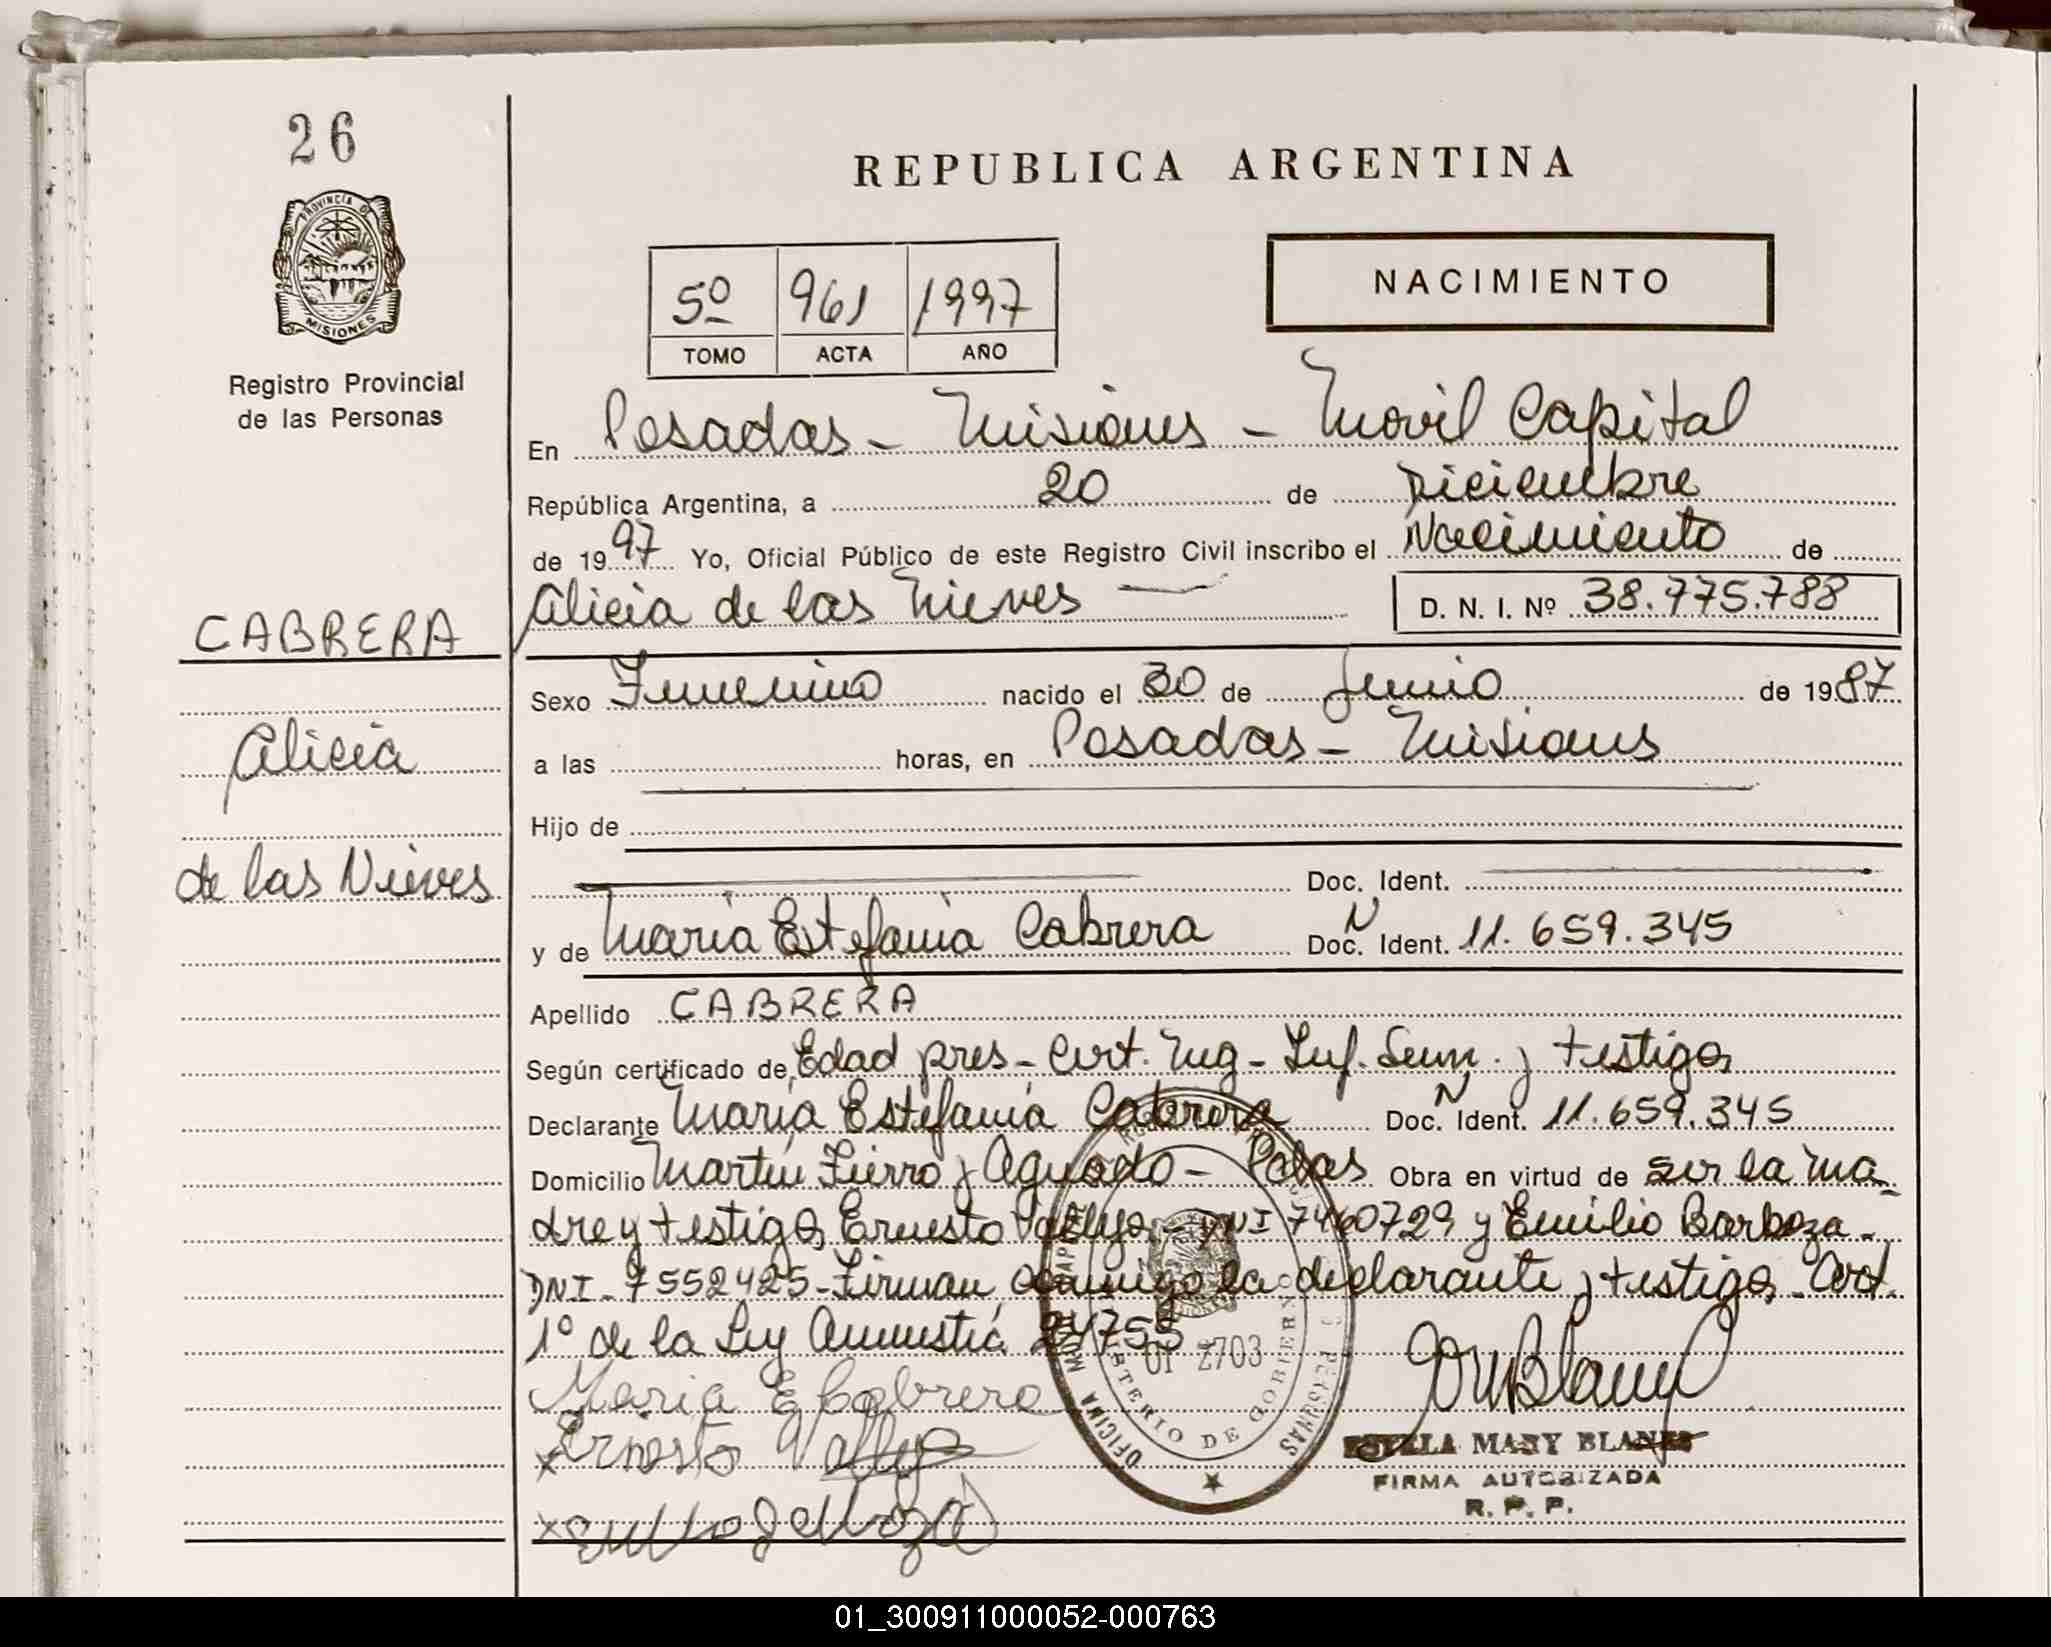 26
REPUBLICA ARGENTINA
PROVINCIA DE
MISIONES
NACIMIENTO
5º 961 1997
TOMO ACTA AÑO
Registro Provincial
de las Personas
En Posadas - Misiones - Movil Capital
República Argentina, a 20 de Diciembre
de 1997 Yo, Oficial Público de este Registro Civil inscribo el Nacimiento de
Alicia de las Nieves D. N. I. Nº 38.775.788
CABRERA
Alicia
de las Nieves
Sexo Femenino nacido el 30 de Junio de 1987
a las horas, en Posadas - Misiones
Hijo de
Doc. Ident.
y de Maria Estefania Cabrera Doc. N Ident. 11.659.345
Apellido CABRERA
Según certificado de Edad pres - Cert. Neg - Inf. Sum. y testigos
Declarante Maria Estefania Cabrera Doc. N Ident. 11.659.345
Domicilio Martin Fierro y Aguado - Pdas Obra en virtud de ser la ma-
dre y testigos Ernesto DNI 7460729 y Emilio Barboza -
DNI - 7552425 - Firman conmigo la declarante y testigos - Art.
1º de la Ley Amnistia 24755
Maria E Cabrera
x Ernesto
x
OFICINA MOVIL CAPITAL
MINISTERIO DE GOBIERNO
PERSONAS
01 2703
ESTELA MARY BLANES
FIRMA AUTORIZADA
R. P. P.
01_300911000052-000763